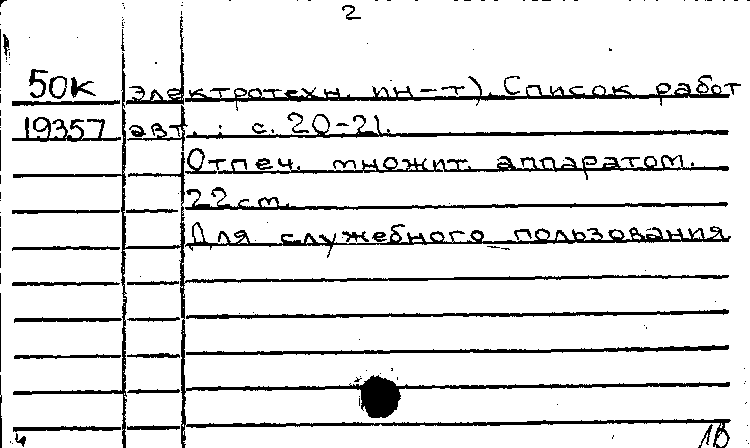 2
50К электротехн. ин-т). Список работ
19357 авт.: с. 20-21.
Отпеч. множит. аппаратом.
22см.
Для служебного пользования